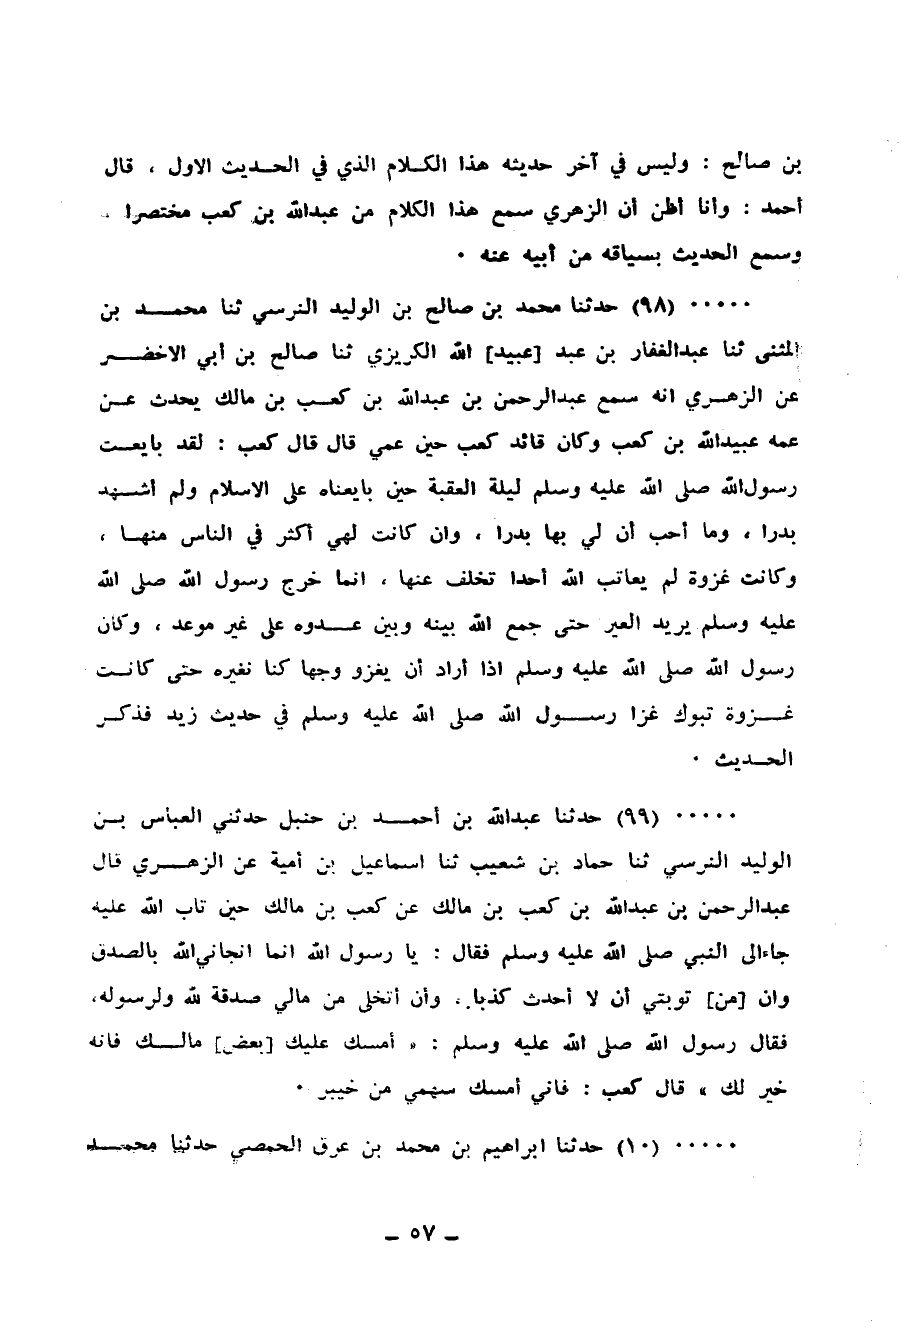 بن صالح : وليس في آخر حديثه هذا الكلام الذي في الحديث الاول ، قال
أحمد : وأنا أظن أن الزهري سمع هذا الكلام من عبدالله بن كعب مختصرا .
وسمع الحديث بسياقه من أبيه عنه ٠
٠٠٠٠٠ (٩٨) حدثنا محمد بن صالح بن الوليد النرسي ثنا محمد بن
المثنى ثنا عبدالغفار بن عبد [عبيد] الله الكريزي ثنا صالح بن أبي الاخضر
عن الزهري انه سمع عبدالرحمن بن عبدالله بن كعب بن مالك يحدث عن
عمه عبيدالله بن كعب وكان قائد كعب حين عمي قال قال كعب : لقد بايعت
رسول الله صلى الله عليه وسلم ليلة العقبة حين بايعناه على الاسلام ولم أشهد
بدرا ، وما أحب أن لي بها بدرا ، وان كانت لهي أكثر في الناس منها ،
وكانت غزوة لم يعاتب الله أحدا تخلف عنها ، انما خرج رسول الله صلى الله
عليه وسلم يريد العير حتى جمع الله بينه وبين عدوه على غير موعد ، وكان
رسول الله صلى الله عليه وسلم اذا أراد أن يغزو وجها كنا نغيره حتى كانت
غزوة تبوك غزا رسول الله صلى الله عليه وسلم في حديث زيد فذكر
الحديث ٠
٠٠٠٠٠ (٩٩) حدثنا عبدالله بن أحمد بن حنبل حدثني العباس بن
الوليد النرسي ثنا حماد بن شعيب ثنا اسماعيل بن أمية عن الزهري قال
عبدالرحمن بن عبدالله بن كعب بن مالك عن كعب بن مالك حين تاب الله عليه
جاءالى النبي صلى الله عليه وسلم فقال : يا رسول الله انما انجاني الله بالصدق
وان [من] توبتي أن لا أحدث كذبا ، وأن أنخلى من مالي صدقة لله ولرسوله،
فقال رسول الله صلى الله عليه وسلم : « أمسك عليك [بعض] مالك فانه
خير لك » قال كعب : فاني أمسك سهمي من خيبر ٠
٠٠٠٠٠ (١٠) حدثنا ابراهيم بن محمد بن عرق الحمصي حدثنا محمد
ـ ٥٧ ـ